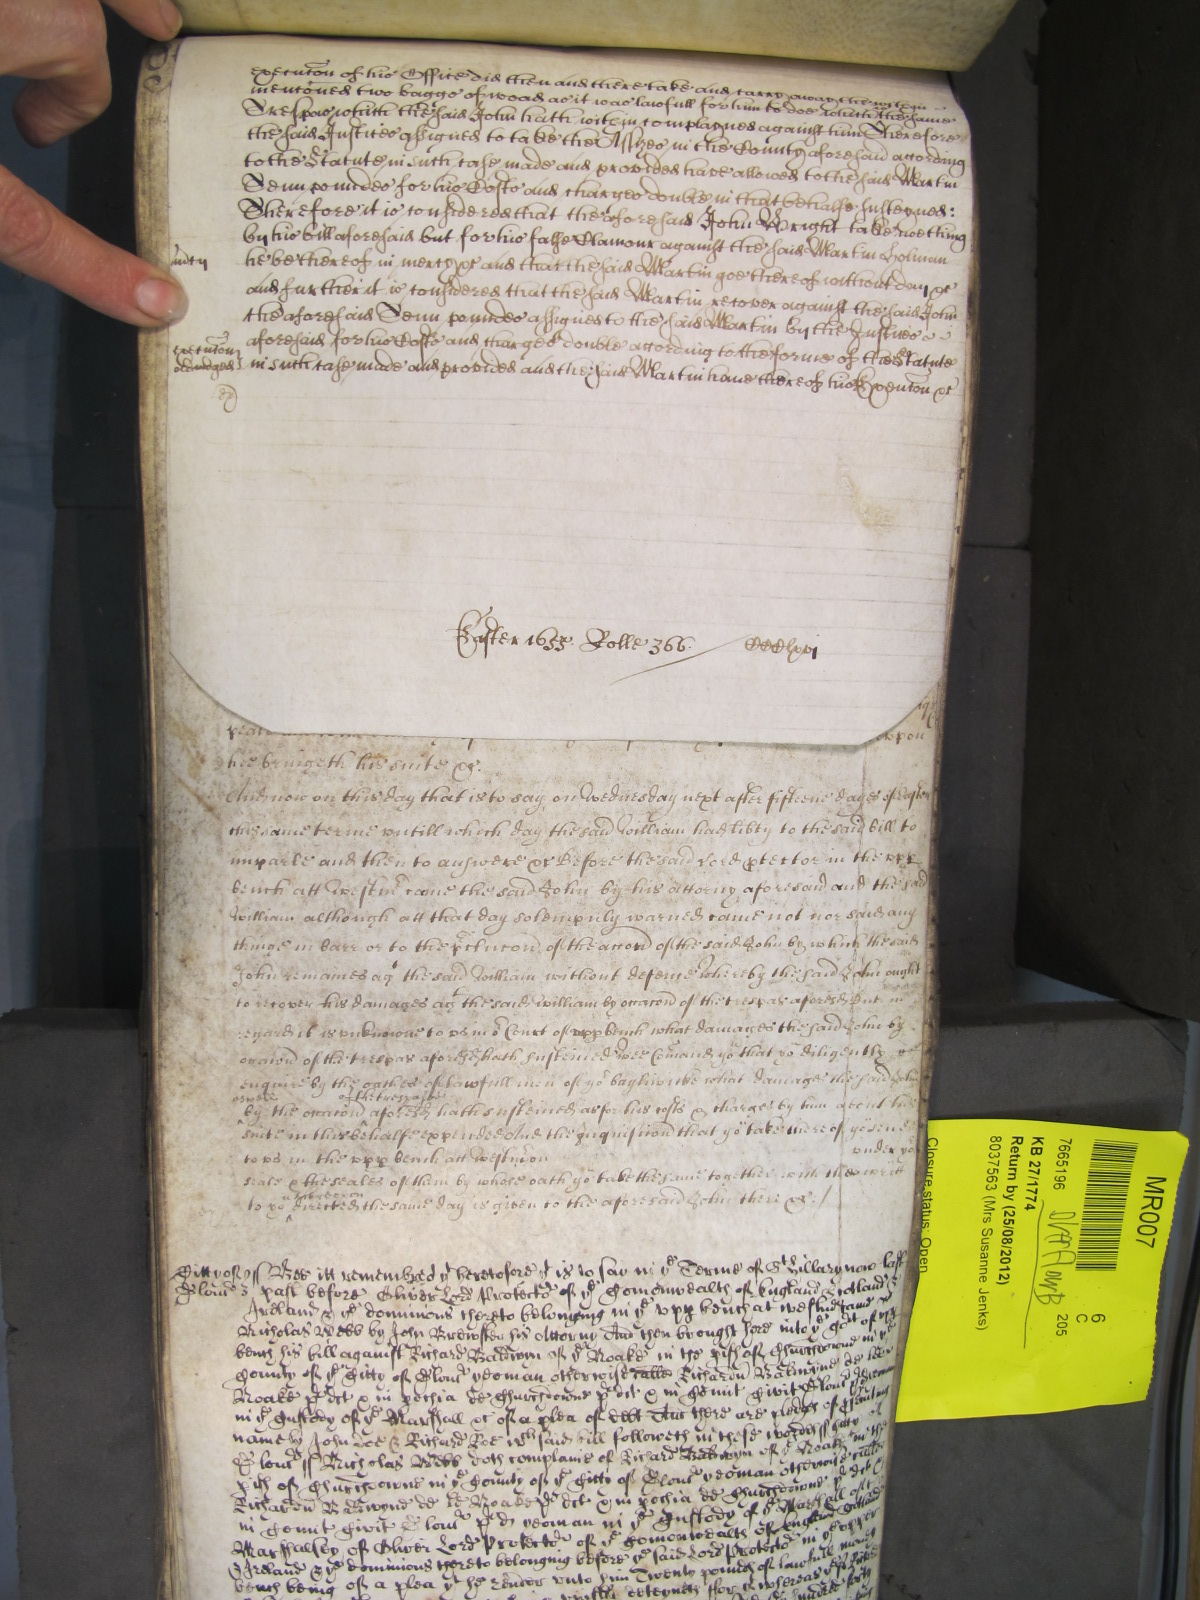 execution of his Office did then and there take and carry away the within
mentioned two baggs of woad as it was lawfull for him to doe which the same
Trespas which the said John hath within complayned against him Therefore
the said Justices assigned to take the Assizes in the County aforesaid according
to the Statute in such case made and provided have allowed to the said Martin
Seaun poundes for his Costs and charges double in that behalfe susteyned:
Therefore it is considered that the aforesaid John Wright take nothing
by his bill aforesaid but for his false Clamour against the said Martin Holman
he be thereof in mercy &c and that the said Martin goe thereof without day &c
and further it is considered that the said Martin recover against the said John
the aforesaid Seaun poundes assigned to the said Martin by the Justices
aforesaid for his Costs and charges double according to the forme of the Statute
in such case made and provided and the said Martin haue thereof his Execution &c
Easter 1655. Rolle 366. CCClxvi
upon
hee bringeth his suite &c.
And now on this day that is to say on Wednesday next after fifteene dayes of Easter
this same terme untill which day the said William had libty to the said bill to
imparle and then to answere &c Before the said Lord ptector in the upp
bench att Westmr came the said John by his attorny aforesaid and the said
William although att that day solempnly warned came not nor said any
thinge in barr or to the pclucon of the accon of the said John by which the said
John remaines agt the said William without defence whereby the said John ought
to recover his damages agt the said William by occacon of the trespas aforesd But in
regard it is unknowne to us in ye Court of upp bench what damages the said John by
occacon of the trespas aforesd hath susteined wee Comand yo that yo diligently
enquire by the oathes of lawfull men of yor bayliwike what damages the said John
aswell of the trespas
by the occacon aforesd hath susteined as for his costs & charges by him about his
suite in this behalfe expended And the inquisicon that yo take thereof yo send
to us in the upp bench att Westm on under yor
seale & the seales of them by whose oath yo take the same together with this writt
to yo thereupon directed the same day is given to the aforesaid John there &c./
Citty of Glouc ss Bee itt remembred yt heretofore yt is to say in ye Terme of St Hillary now last
past before Oliver Lord Protector of ye Comonwealth of England Scotland &
Ireland & ye dominions thereto belonging in ye upp bench at Westmr came
Nicholas Webb by John Brewster his Attorny And then brought here into ye Cort of upp
bench his bill against Richard Baldwyn of ye Noake in the pish of Churchdowne in ye
County of ye Citty of Glouc yeoman otherwise called Richard Baldwyne de lee
Noake
in ye Custody of ye Marshall &c of a plea of debt And there are pledges of psecuting
namely John Doe & Richard Roe wch said bill followeth in these words ss Citty of
Glouc ss Nicholas Webb doth complaine of Richard Baldwyn of ye Noake in the
pish of Churchdowne in ye County of ye Citty of Glouc yeoman otherwise called
Richard Baldwyne de lee Noake
in Comit Civit Glouc yeoman in ye Custody of ye Marshall of ye
Marshallsey of Oliver Lord Protector of ye Comonwealth of England Scotland
& Ireland & ye dominions thereto belonging before ye said Lord Protector in ye upper
bench being of a plea yt he render unto him Twenty pounds of lawfull money
MR007
6
C
205
7665196
KB 27/1774
Return by (25/08/2012)
8037563 (Mrs Susanne Jenks)
Closure status: Open